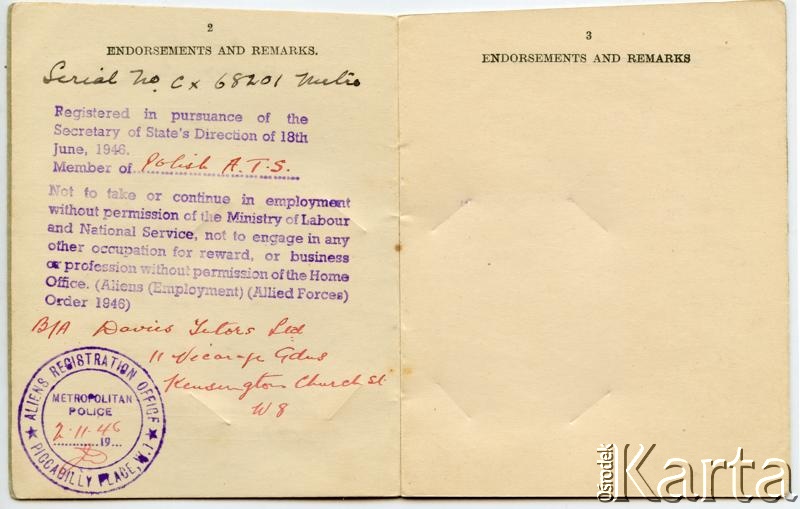 2
ENDORSEMENTS AND REMARKS.
Serial No. Cx 68201 Metro
Registered in pursuance of the
Secretary of State's Direction of 18th
June, 1946.
Member of Polish A.T.S.
Not to take or continue in employment
without permission of the Ministry of Labour
and National Service, not to engage in any
other occupation for reward, or business
or profession without permission of the Home
Office. (Aliens (Employment) (Allied Forces)
Order 1946)
B/A Davies Tutors Ltd
11 Vicarage Gdns
Kensington Church St.
W8
ALIENS REGISTRATION OFFICE
METROPOLITAN
POLICE
2.11.46
19
PICCADILLY PLACE, W.1
3
ENDORSEMENTS AND REMARKS
Ośrodek
Karta